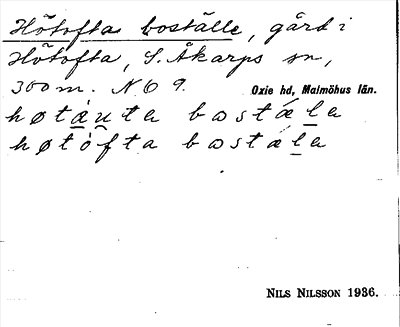 Hötofta boställe, gård i
Hötofta, S. Åkarps sn,
300 m. N O 9. Oxie hd, Malmöhus län.
høtáu̯ta bostǽla
høtófta bostǽla
NILS NILSSON 1936.